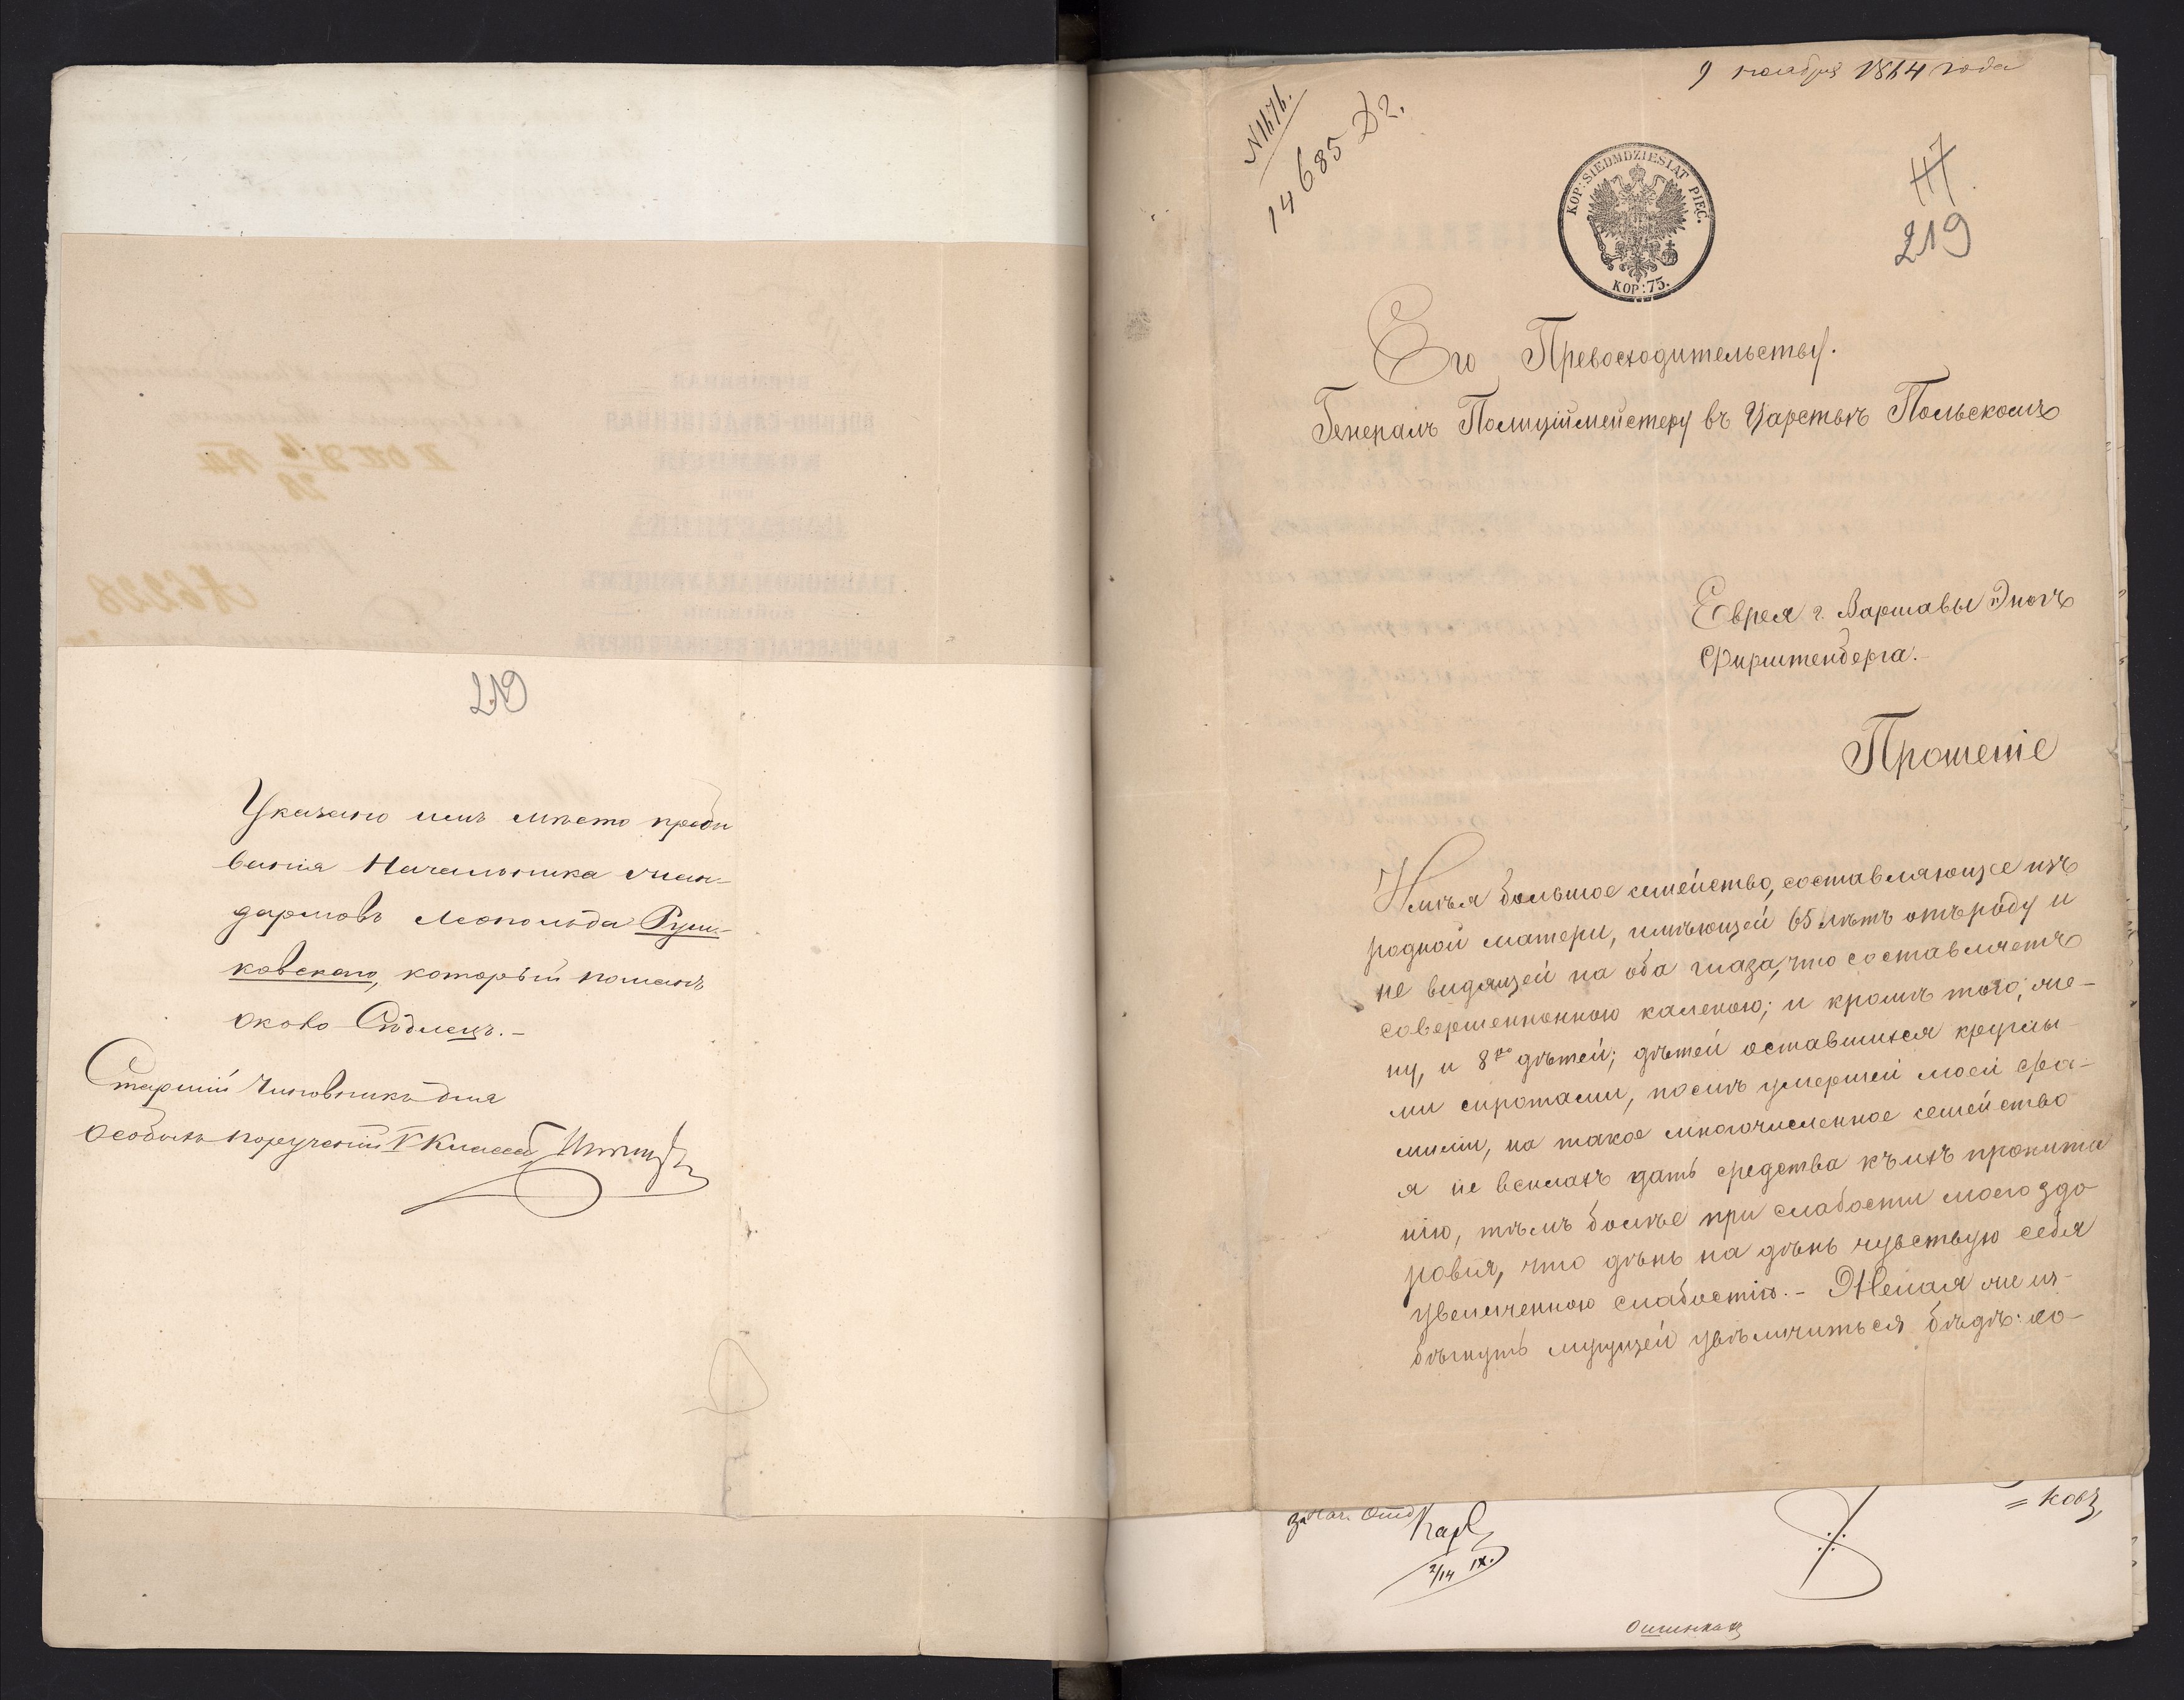 219
Указано имъ мѣсто преби
ванія Начальника жан-
дармовъ Леопольда Рум-
ковскаго, который пойманъ
около Сѣдлецъ.-
Старшій Чиновникъ для
особыхъ порученій V Класса
9 ноября 1864 года
14685 Д2.
KOP: SIEDMDZIESIAT PIĘC.
KOP: 75.
117
219
Его Превосходительству.
Генералъ Полиціймейстеру въ Царствѣ Польскомъ
Еврея г. Варшавы Энохъ
Фирштенберга.-
Прошеніе
Имѣя большое семейство, составляющее изъ
родной матери, имѣющей 65 лѣтъ отъ роду и
не видящей на оба глаза, что составляетъ
совершенною калекою; и кромѣ того, же-
ну, и 8мо дѣтей; дѣтей оставшихся круглы-
ми сиротами, послѣ умершей моей фа-
миліи, на такое многочисленное семейство
я не всилахъ дать средства къ ихъ пропита
нію, тѣмъ болѣе при слабости моего здо
ровія, что дѣнь на дѣнь чувствую себя
увеличенною слабостію.- Желая же из-
бѣгнуть могущей увѣличиться бѣдѣ: хо-
за Нач. Отд.
2/14 IX.